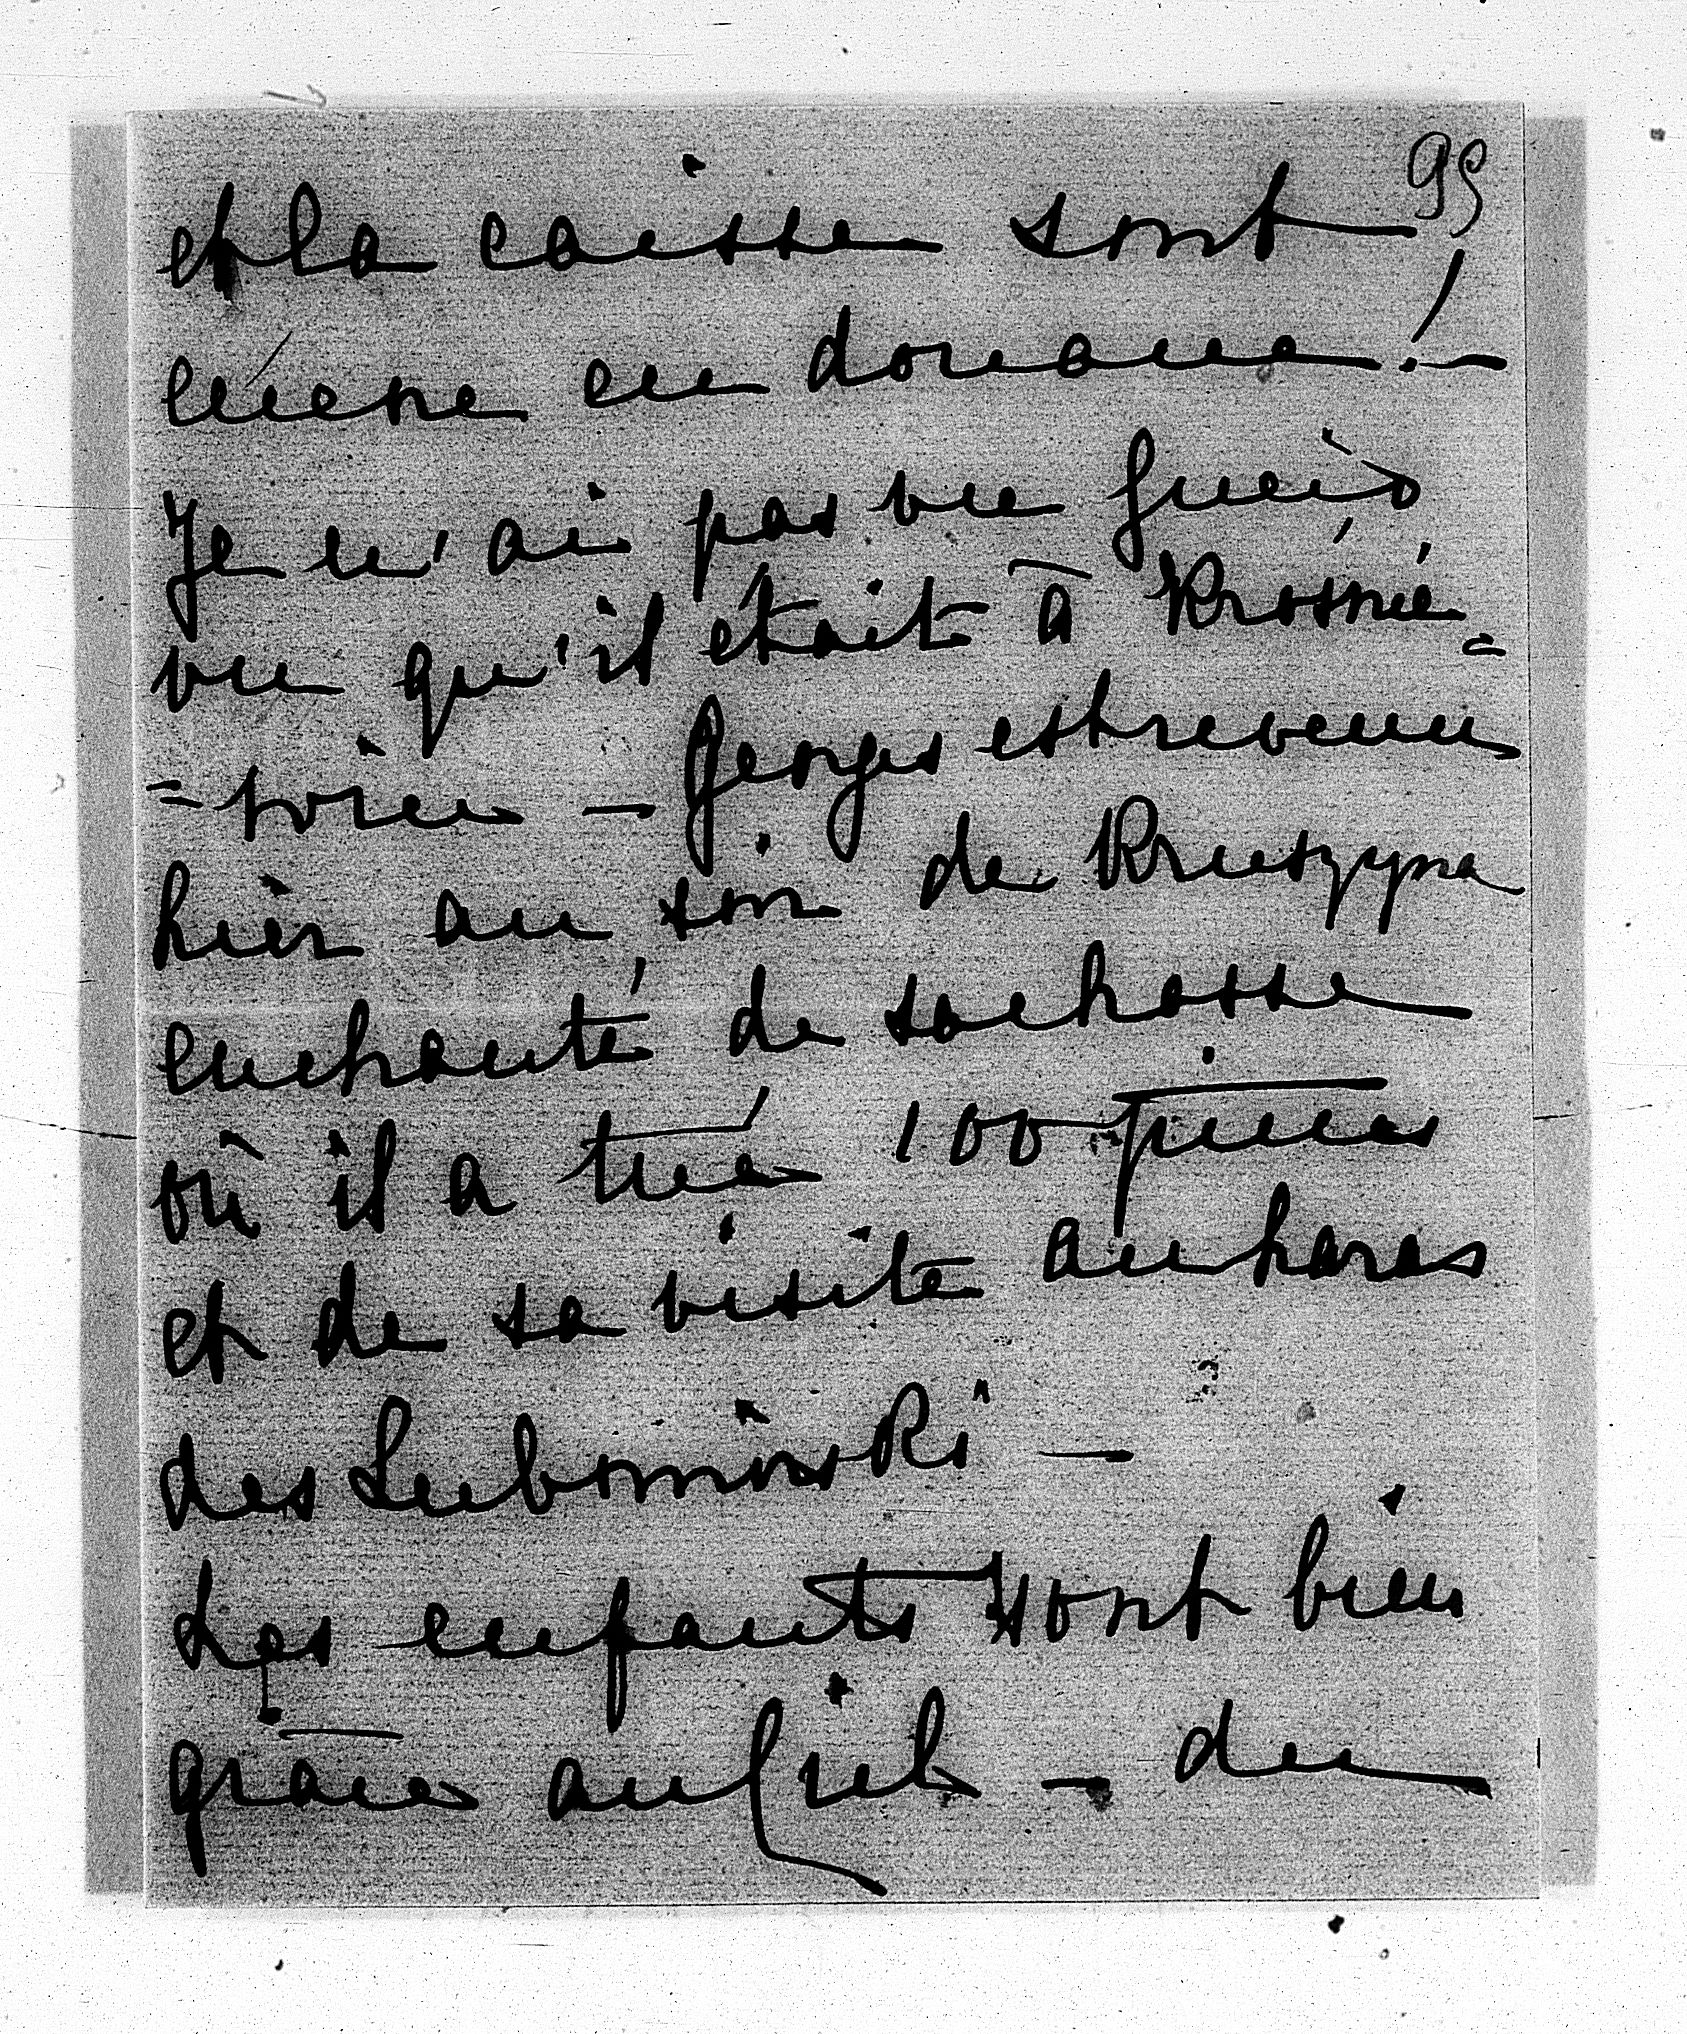 95
et la caisse sont
encore en douane! —
Je n'ai pas vu Guido
vu qu'il était à Krosnié=
=vice — Georges est revenu
hier au soir de Kruszyna
enchanté de sa chasse
où il a tué 100 pièces
et de sa visite au haras
des Lubomirski —
Les enfants sont bien
grâce au Ciel — du